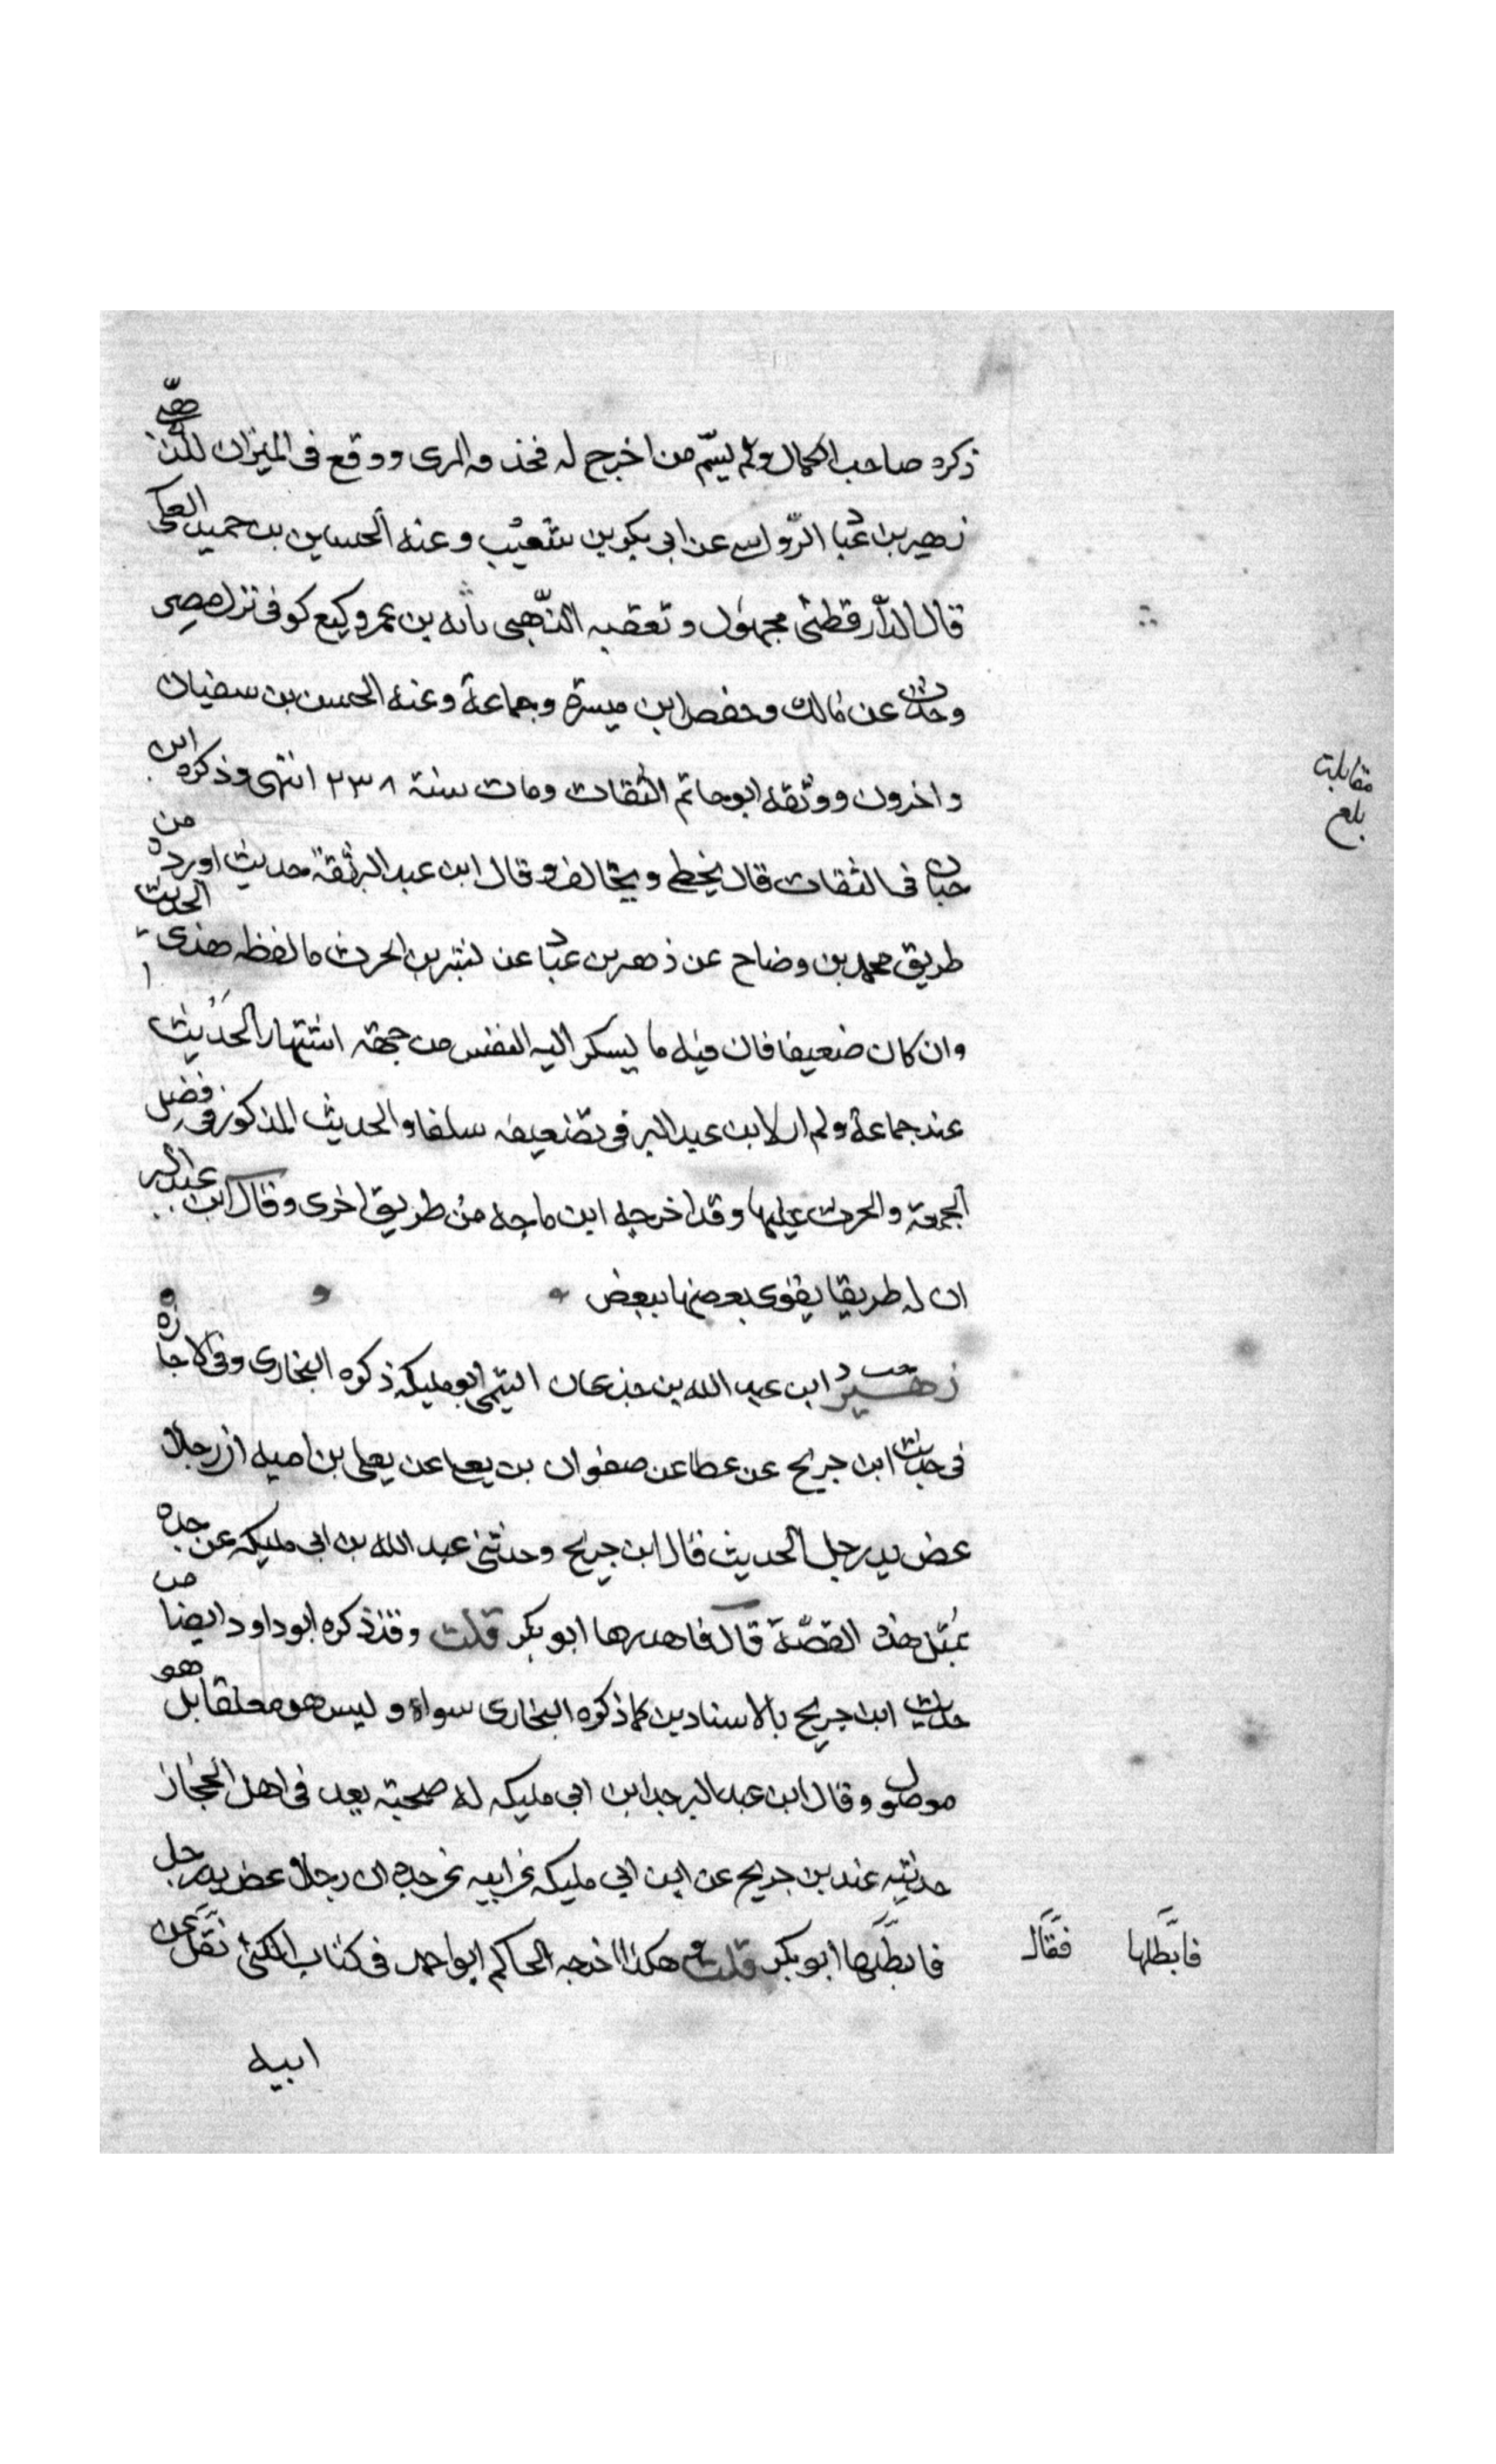 ذكره صاحب الكمال ولم يسم من اخرج له فحذفه المزى ووقع فى الميزان للذهبى
زهير بن عباد الرواسى عن ابى بكر بن شعيب وعنه الحسين بن حميد العكى
قال الدارقطنى مجهول وتعقبه الذهبى بانه بن عم وكيع كوفى نزل مصر
وحدث عن مالك وحفص ابن ميسرة وجماعة وعنه الحسن بن سفيان
واخرون ووثقه ابو حاتم الثقات ومات سنة ٢٣٨ انتهى وذكره ابن
حبان فى الثقات قال يخطى ويخالف وقال ابن عبد البر ثقة حديث اورده من
طريق محمد بن وضاح عن زهير بن عباد عن الحرث ما لفظه هذى الحديث
وان كان ضعيفا فان فيه ما يسكن اليه النفس من جهة اشتهار الحديث
عند جماعة ولم ار لابن عبد البر فى تضعيفه سلفا والحديث المذكور فى فضل
الجمعة والحرث عليها وقد اخرجه ابن ماجه من طريق اخرى وقال ابن عبد البر
ان له طريقا يقوى بعضها ببعض
زهير ابن عبد الله بن جذعان التيمى ابو مليكه ذكره البخارى وفى الاجازه
فى حديث ابن جريج عن عطا عن صفوان بن يعلى عن يعلى بن اميه ان رجلا
عض يد رجل الحديث قال ابن جريج وحدثنى عبد الله بن ابى مليكه عن جده
بمثل هذه القصة قال فاهدرها ابو بكر قلت وقد ذكره ابو داود ايضا من
حديث ابن جريج بالاسنادين كما ذكره البخارى سواء وليس هو معلقا بل هو
موصول وقال ابن عبد البر جد ابن ابى مليكه له صحبة يعد فى اهل الحجاز
حديثه عند بن جريج عن ابن ابى مليكه عن ابيه عن جده ان رجلا عض يد رجل
فابطلها ابو بكر قلت هكذا اخرجه الحاكم ابو احمد فى كتاب الكنى نقل عن
ابيه
مقابلت
بلغ
فابطلها فقال